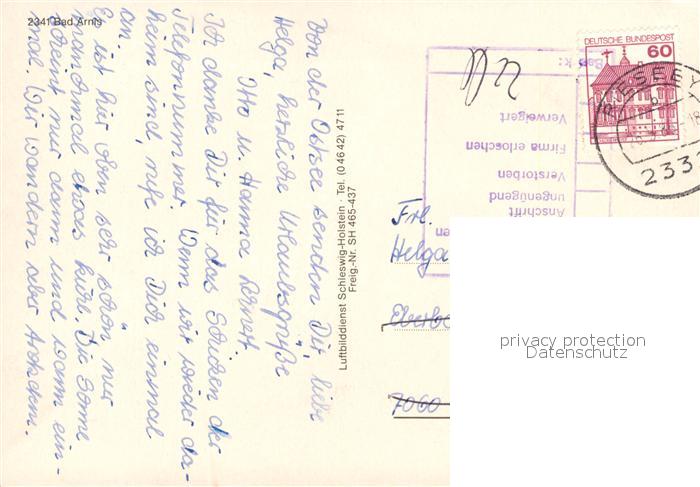 2341 Bad Arnis
Von der Ostsee senden Dir, liebe
Helga, herzliche Urlaubsgrüße
Otto u. Hanna
Ich danke Dir für das Schicken der
Telefonnummer. Wenn wir wieder da-
heim sind, rufe ich Dich einmal
an.
Es ist hier oben sehr schön nur
manchmal etwas kühl. Die Sonne
scheint nur dann und wann ein-
mal. Wir wandern aber trotzdem.
Luftbilddienst Schleswig-Holstein · Tel. (0 46 42) 47 11
Freig.-Nr. SH 465-437
DEUTSCHE BUNDESPOST
60
233
Verweigert
Firma erloschen
Verstorben
ungenügend
Anschrift
Frl.
Helga
7060
privacy protection
Datenschutz